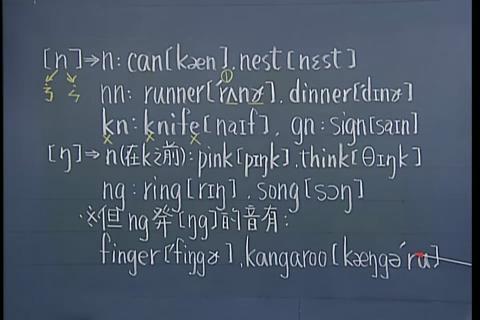 [n]⇒n: can[kæn]. nest[nɛst]
ㄋ ㄣ nn: runner[ˈrʌnɚ]. dinner[ˈdɪnɚ]
①
kn: knife[naɪf]. gn: sign[saɪn]
[ŋ]⇒n(在k之前): pink[pɪŋk]. think[θɪŋk]
ng: ring[rɪŋ]. song[sɔŋ]
※但ng發[ŋg]的音有:
finger[ˈfiŋgɚ]. kangaroo[kæŋgəˊru]